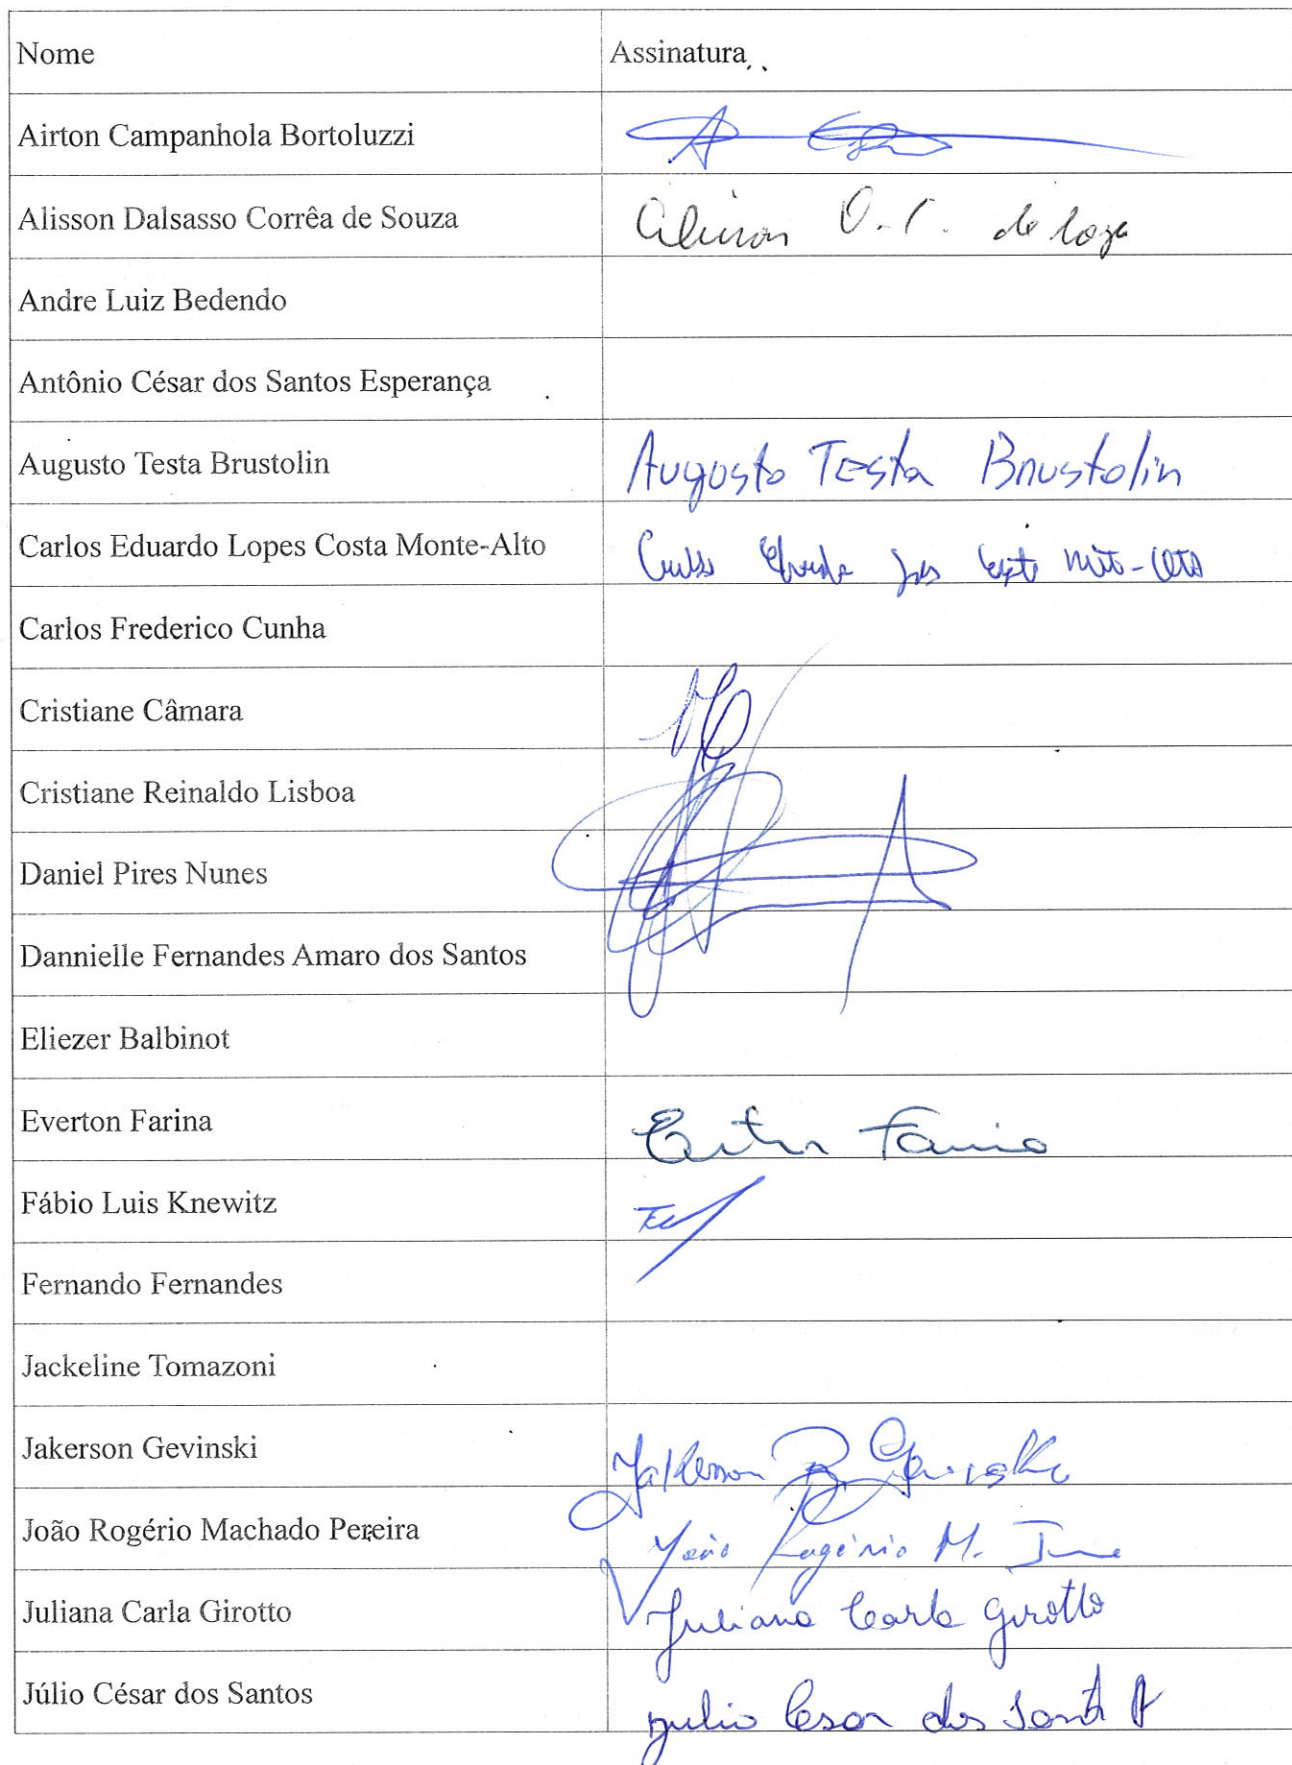 Nome Assinatura
Airton Campanhola Bortoluzzi
Alisson Dalsasso Corrêa de Souza
Andre Luiz Bedendo
Antônio César dos Santos Esperança
Augusto Testa Brustolin Augusto Testa Brustolin
Carlos Eduardo Lopes Costa Monte-Alto
Carlos Frederico Cunha
Cristiane Câmara
Cristiane Reinaldo Lisboa
Daniel Pires Nunes
Dannielle Fernandes Amaro dos Santos
Eliezer Balbinot
Everton Farina
Fábio Luis Knewitz
Fernando Fernandes
Jackeline Tomazoni
Jakerson Gevinski Jakerson
João Rogério Machado Pereira João Rogério M.
Juliana Carla Girotto Juliana Carla Girotto
Júlio César dos Santos Julio Cesar dos